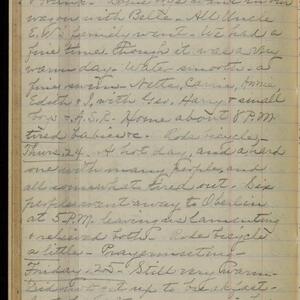 wagon with Belle. All Uncle
E.W.'s family went. We had a
fine time though it was a very
warm day. Water smooth. a
fine swim. Nettie, Carrie, Annie
Edith & I, with Geo, Harry & small
boys & A.S.R. Home about 8 P.M
tired babies &c. Rode bicycle.
Thurs. 24. A hot day, and a hard
one with many people, and
all somewhat tired out. Six
people went away to Oberlin
at 5 P.M. leaving us lamenting
& relieved both. Rode bicycle
a little. Prayermeeting.
Friday 25. Still very warm.
Did not get up to breakfast.